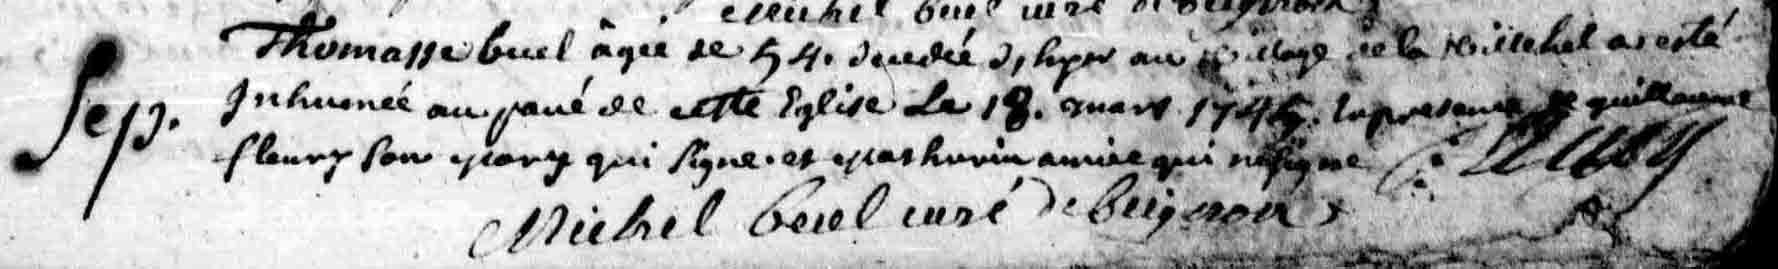 Michel buel curé de Beignon
Sep.
Thomasse buel âgée de 54. decedée d'hyer au village de la ville a esté
Inhumée au pavé de cette Eglise Le 18. mars 1745. En presence de guillaume
fleury Son mary qui Signe. et Mathurin amice qui ne Signe
fleury
Michel buel curé de Beignon